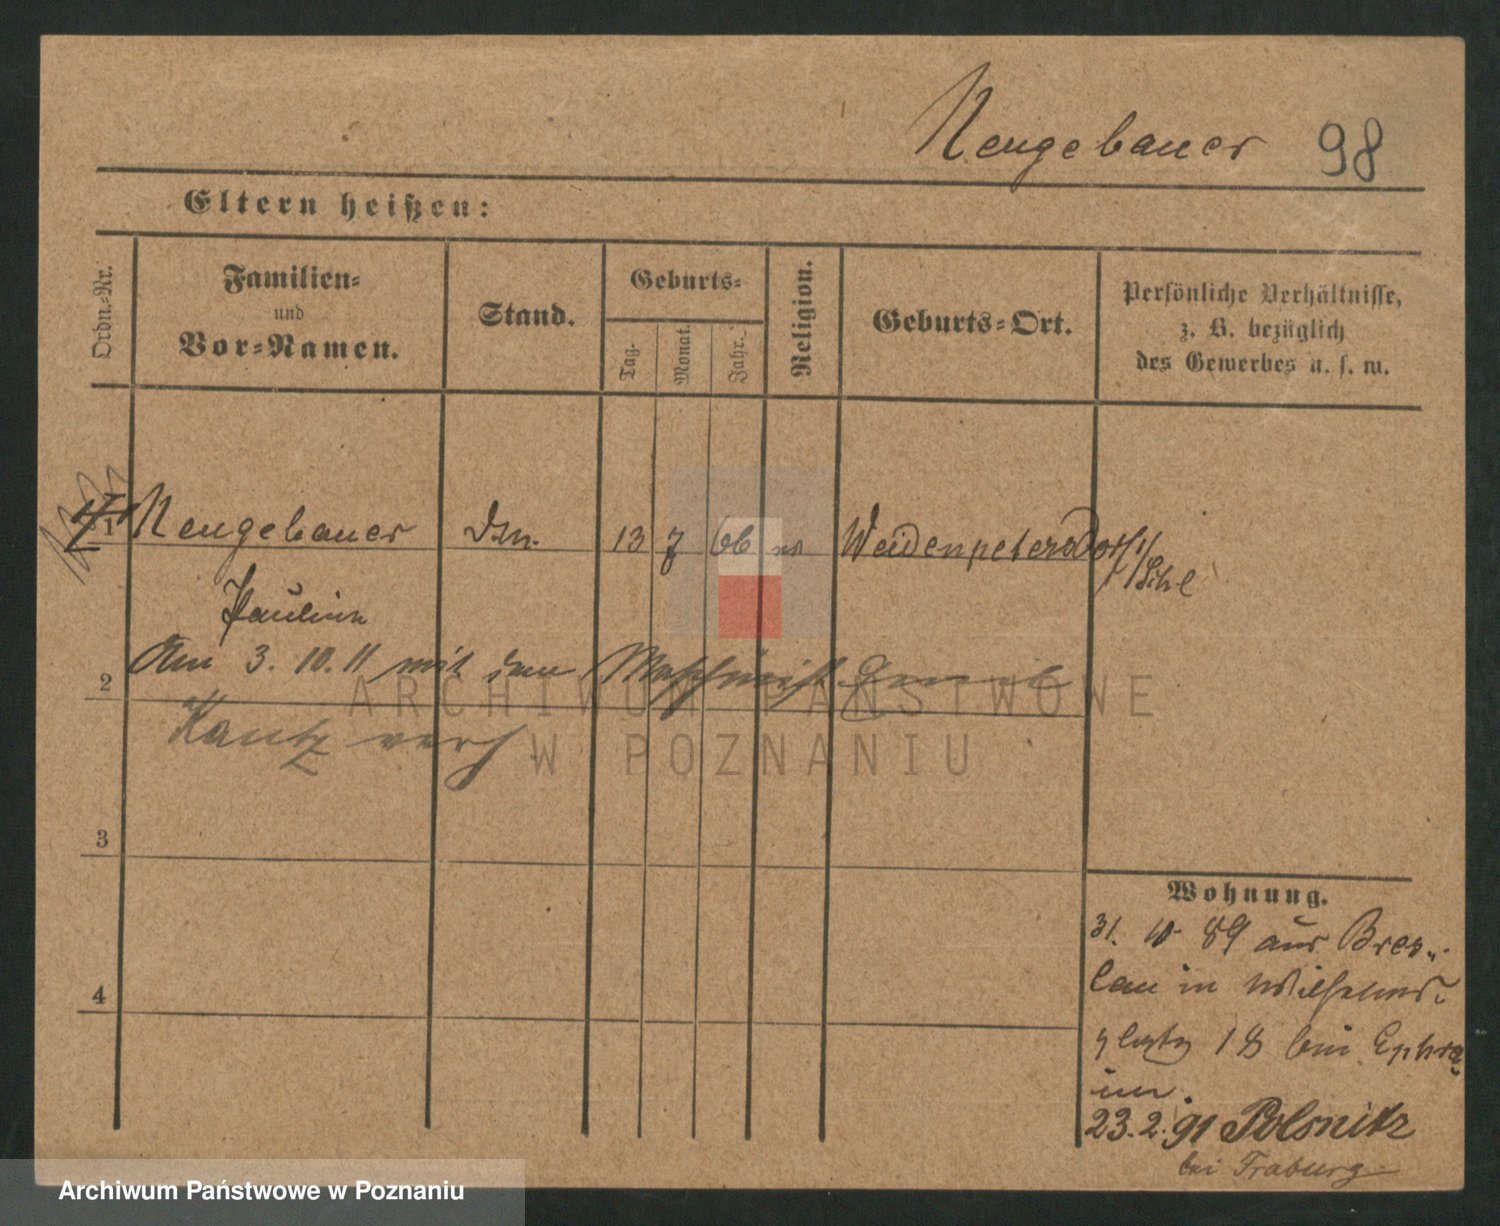 Neugebauer 98
Eltern heißen:
Ordn.-Nr.
Familien-
und
Vor-Namen.
Stand.
Geburts-
Tag.
Monat.
Jahr.
Religion.
Geburts-Ort.
Persönliche Verhältnisse,
z. B. bezüglich
des Gewerbes u. s. w.
1 Neugebauer 13 7 66 Weidenpetersdorf
Pauline
Am 3. 10. 11 mit dem
2
Kautz verh
3
4
Wohnung.
31. 10 89 aus Bres-
lau in Wilhelms-
platz 18 bei Ephra
im.
23.2.91 Polsnitz
bei Fraburg
ARCHIWUM PAŃSTWOWE
W POZNANIU
Archiwum Państwowe w Poznaniu